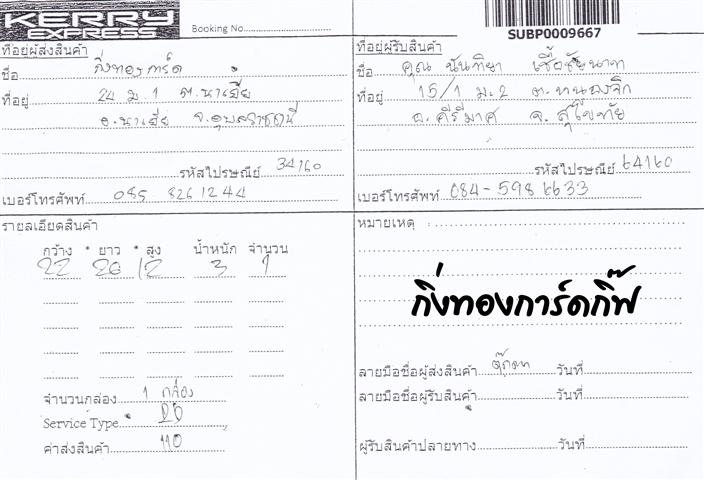 KERRY
EXPRESS
Booking No
SUBP0009667
ที่อยู่ผู้ส่งสินค้า
ชื่อ กิ่งทองการ์ด
ที่อยู่ 24 ม.1 ต.นาเยีย
อ.นาเยีย จ.อุบลราชธานี
รหัสไปรษณีย์ 34160
เบอร์โทรศัพท์ 085 8261244
ที่อยู่ผู้รับสินค้า
ชื่อ คุณ นันทิยา เชื้อชัยนาท
ที่อยู่ 15/1 ม.2 ต.หนองจิก
อ.คีรีมาศ จ.สุโขทัย
รหัสไปรษณีย์ 64160
เบอร์โทรศัพท์ 084-598 6633
รายละเอียดสินค้า
กว้าง * ยาว * สูง น้ำหนัก จำนวน
22 26 12 3 1
จำนวนกล่อง 1 กล่อง
Service Type
ค่าส่งสินค้า 110
หมายเหตุ :
กิ่งทองการ์ดกิ๊ฟ
ลายมือชื่อผู้ส่งสินค้า วันที่
ลายมือชื่อผู้รับสินค้า วันที่
ผู้รับสินค้าปลายทาง วันที่